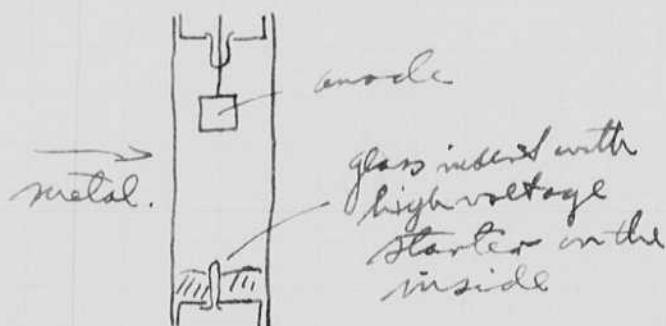 anode
metal.
glass insert with
high voltage
starter on the
inside